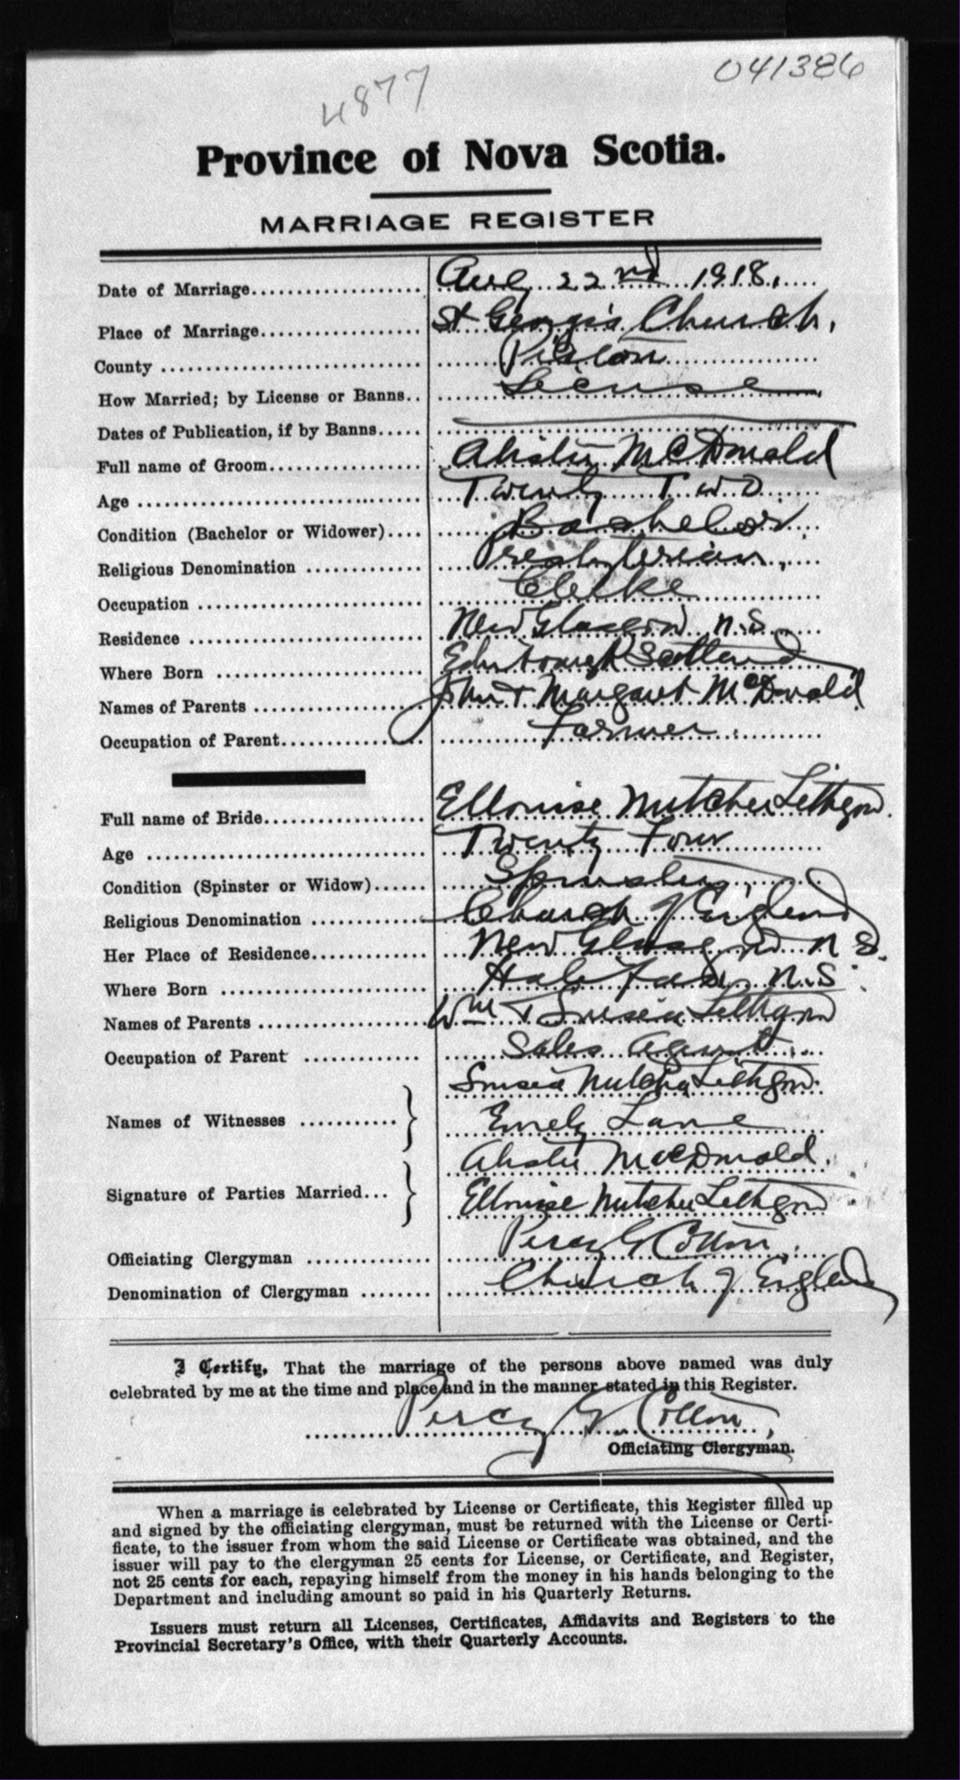 4877
041386
Province of Nova Scotia.
MARRIAGE REGISTER
Date of Marriage Aug 22nd 1918.
Place of Marriage St George's Church,
County Pictou
How Married; by License or Banns License
Dates of Publication, if by Banns
Full name of Groom Alistir McDonald
Age Twenty Two
Condition (Bachelor or Widower) Bachelor
Religious Denomination Presbyterian,
Occupation Clerke
Residence New Glasgow N.S.
Where Born Edinbourgh Scotland
Names of Parents John & Margaret McDonald
Occupation of Parent Farmer.
Full name of Bride Ellouise Mutcher Lithgow.
Age Twenty Four
Condition (Spinster or Widow) Spinster,
Religious Denomination Church of England
Her Place of Residence New Glasgow N S.
Where Born Halifax, N.S.
Names of Parents Wm & Lithgow
Occupation of Parent Sales Agent.
Lithgow.
Names of Witnesses
Emely Lane
Alistir MacDonald.
Signature of Parties Married
Ellouise Mutcher Lithgow
Officiating Clergyman Percy G Cotton.
Denomination of Clergyman Church of England
I Certify, That the marriage of the persons above named was duly
celebrated by me at the time and place and in the manner stated in this Register.
Percy G. Cotton,
Officiating Clergyman.
When a marriage is celebrated by License or Certificate, this Register filled up
and signed by the officiating clergyman, must be returned with the License or Certi-
ficate, to the issuer from whom the said License or Certificate was obtained, and the
issuer will pay to the clergyman 25 cents for License, or Certificate, and Register,
not 25 cents for each, repaying himself from the money in his hands belonging to the
Department and including amount so paid in his Quarterly Returns.
Issuers must return all Licenses, Certificates, Affidavits and Registers to the
Provincial Secretary's Office, with their Quarterly Accounts.